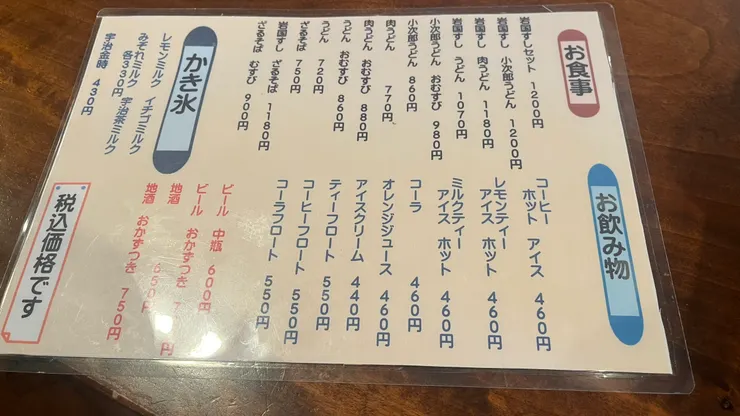 お食事
岩国すしセット 1200円
岩国すし 小次郎うどん 1200円
岩国すし 肉うどん 1180円
岩国すし うどん 1070円
小次郎うどん おむすび 980円
小次郎うどん 860円
肉うどん 770円
肉うどん おむすび 880円
うどん おむすび 860円
うどん 720円
ざるそば 750円
岩国すし ざるそば 1180円
ざるそば むすび 900円
かき氷
レモンミルク イチゴミルク
みぞれミルク 宇治茶ミルク
各330円
宇治金時 430円
お飲み物
コーヒー
ホット アイス 460円
レモンティー
アイス ホット 460円
ミルクティー
アイス ホット 460円
コーラ 460円
オレンジジュース 460円
アイスクリーム 440円
ティーフロート 550円
コーヒーフロート 550円
コーラフロート 550円
ビール 中瓶 600円
ビール おかずつき 7 円
地酒 650円
地酒 おかずつき 750円
税込価格です